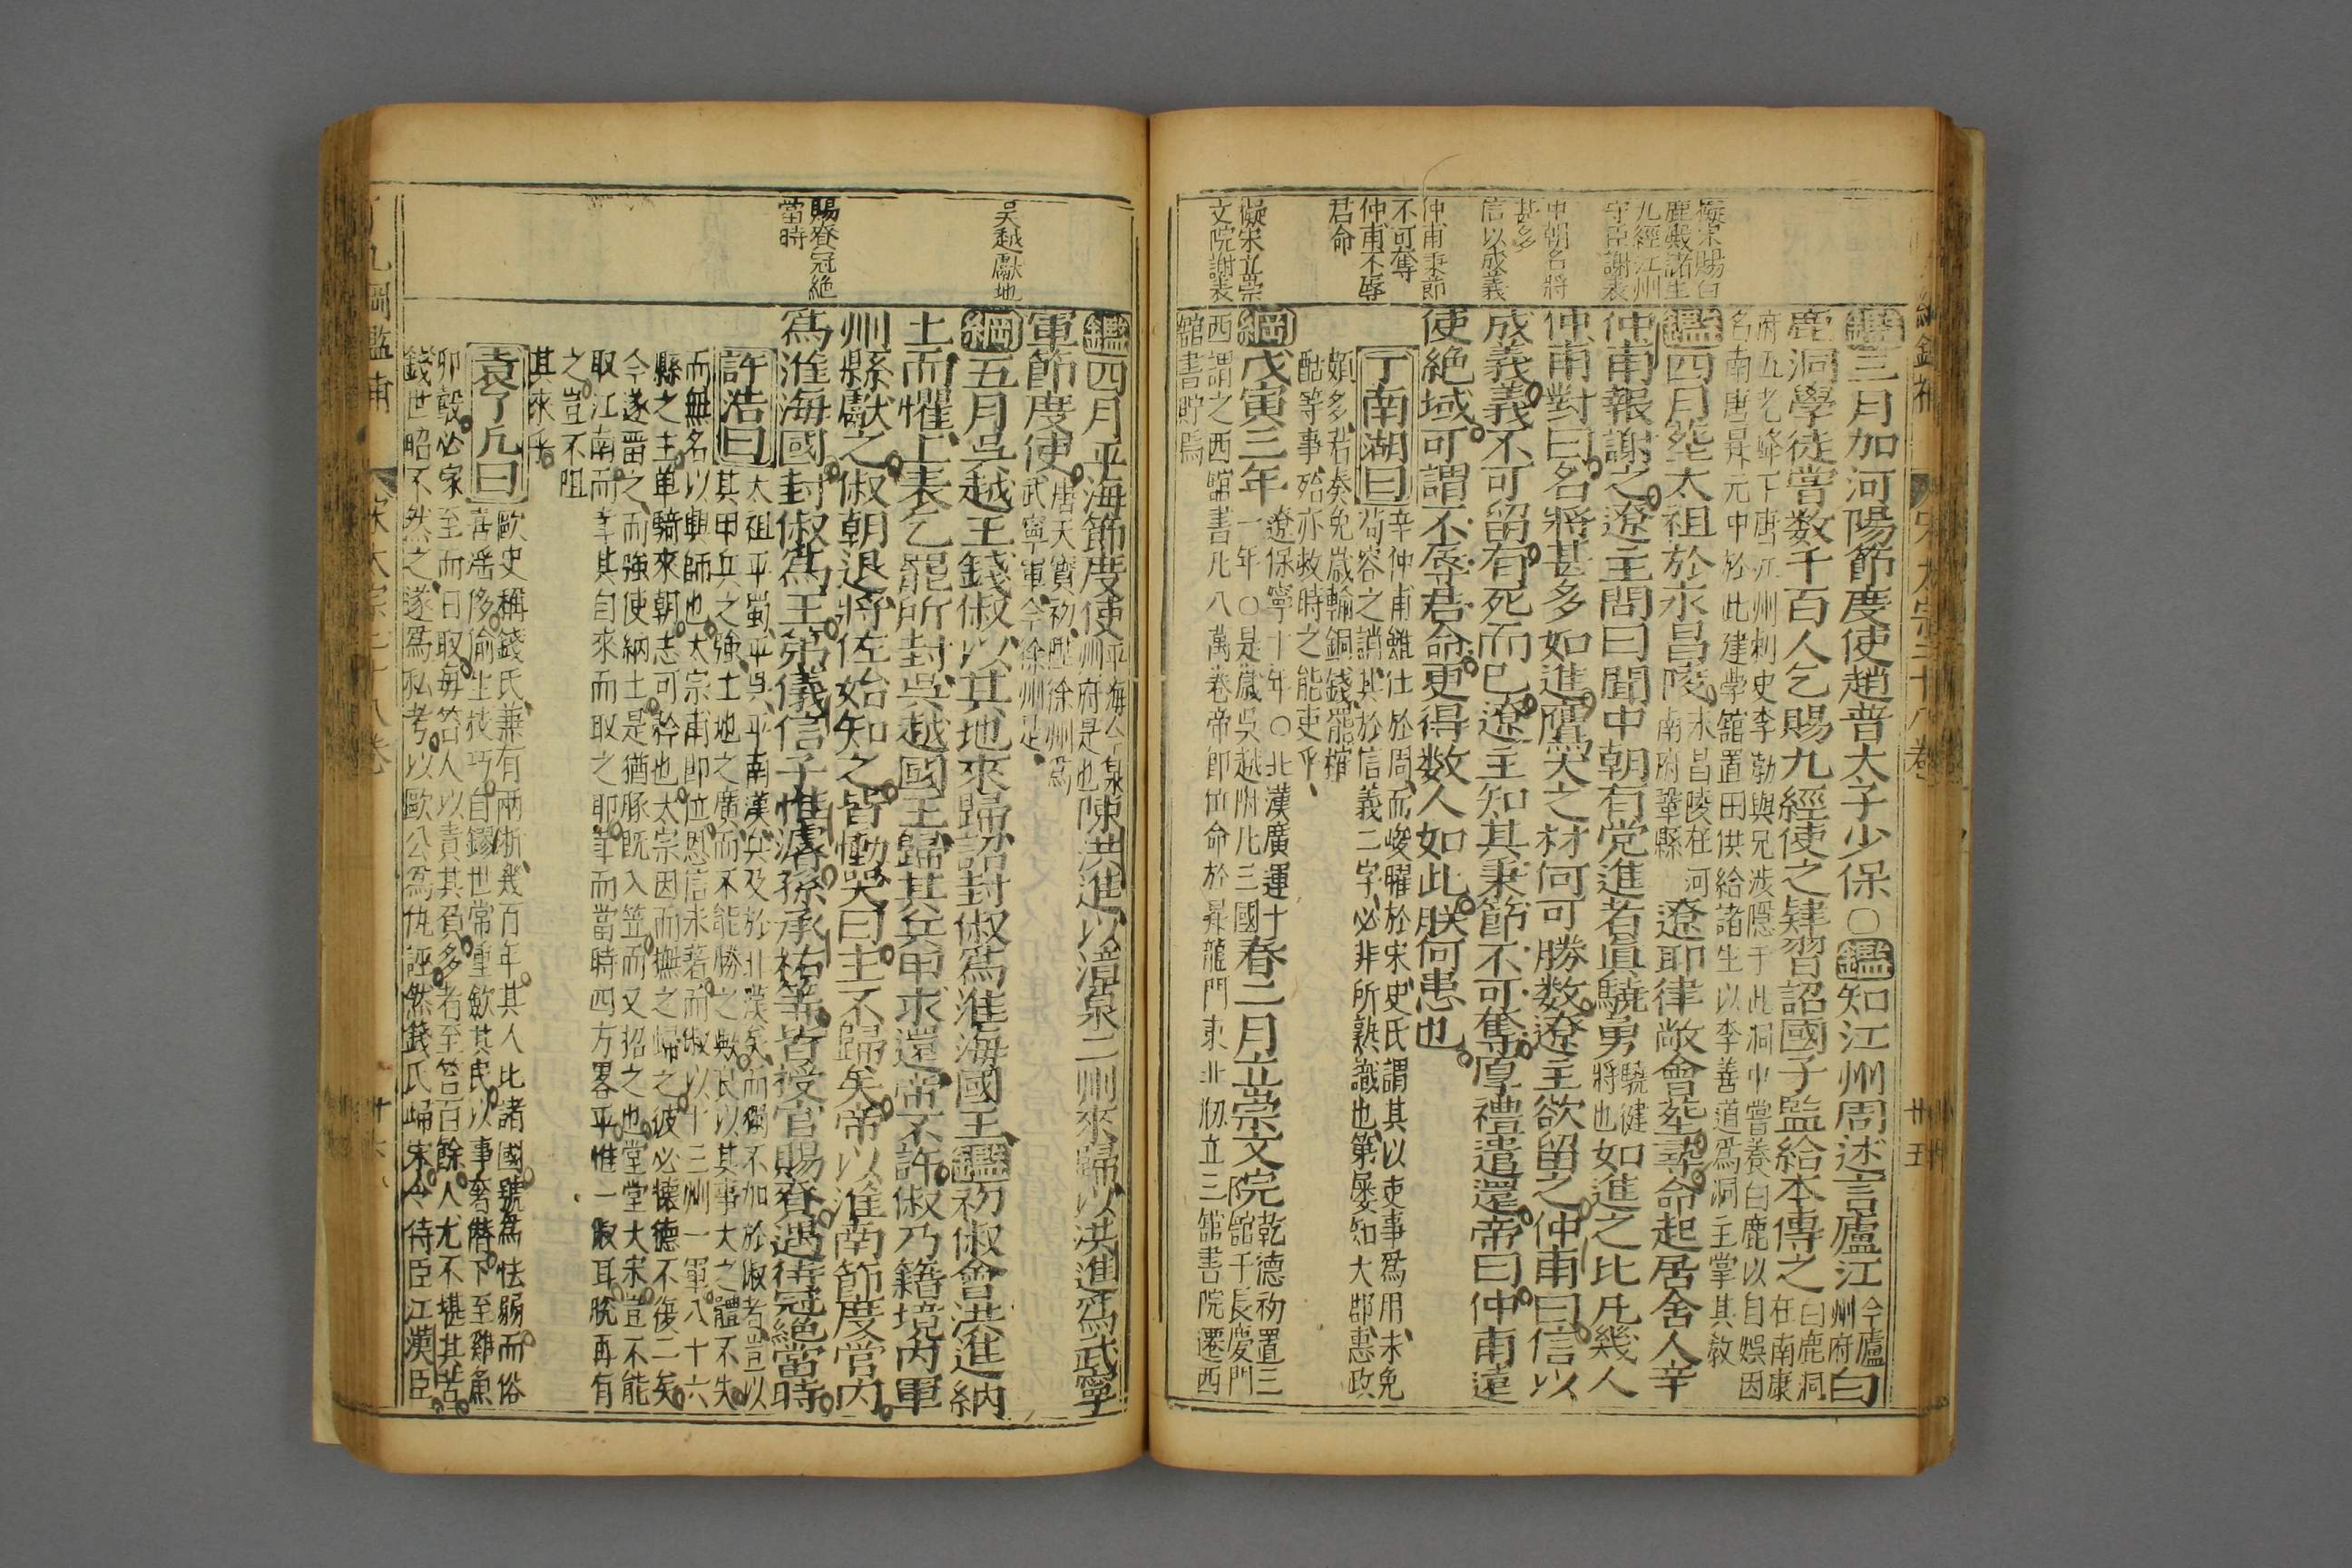 擬宋賜白
鹿殿諸生
九經江州
守臣謝表
中朝名將
甚多
信以成義
仲甫秉節
不可奪
仲甫不辱
君命
擬宋立崇
文院謝表
鑑三月加河陽節度使趙普太子少保○鑑知江州周述言廬江今廬州府白
鹿洞學徒嘗数千百人乞賜九經使之肄習詔國子監給本傳之白鹿洞在南康
府五老峰下唐江州刺史李勃與兄涉隱于此洞中嘗養白鹿以自娛因
名南唐昇元中於此建學舘置田供給諸生以李善道爲洞主掌其敎
鑑四月塟太祖於永昌陵永昌陵在河南府鞏縣遼耶律敞會塟尋命起居舍人辛
仲甫報謝之遼主問曰聞中朝有党進者眞驍勇驍健將也如進之比凡幾人
仲甫對曰名將甚多如進鷹犬之材何可勝数遼主欲留之仲甫曰信以
成義義不可留有死而已遼主知其秉節不可奪厚禮遣還帝曰仲甫遠
使絶域可謂不辱君命更得数人如此朕何患也
丁南湖曰辛仲甫雖仕於周而峻曜於宋史氏謂其以吏事爲用未免
苟容之誚其於信義二字必非所熟識也第屡知大郡惠政
頗多若奏免歲輸銅錢罷榷
酤等事殆亦救時之能吏乎
綱戊寅三年一年○是歲吳越附凡三國遼保寧十年○北漢廣運十春二月立崇文院乾德初置三舘于長慶門
西謂之西舘書凡八萬卷帝卽位命於昇龍門東北剏立三舘書院遷西
舘書貯焉
宋太宗三十八卷
廿五
吳越獻地
賜賚冠絶
當時
鑑四月平海節度使平海今泉州府是也陳洪進以漳泉二州來歸以洪進爲武寧
軍節度使唐天寶初陞徐州爲武寧軍今徐州是
綱五月吳越王錢俶以其地來歸詔封俶爲淮海國王鑑初俶會洪進納
土而懼上表乞罷所封吳越國王歸其兵甲求還帝不許俶乃籍境内軍
州縣獻之俶朝退將佐始知之皆慟哭曰主不歸矣帝以淮南節度管内
爲淮海國封俶爲王弟儀信子惟濬孫承祐等皆授官賜賚遇待冠絶當時
許浩曰太祖平蜀平吳平南漢兵及於北漢矣而獨不加於俶者豈以
其甲兵之強土地之廣而不能勝之歟良以其事大之體不失
而無名以興師也太宗甫卽位恩信未著而俶以十三州一軍八十六
縣之主单騎來朝志可矜也太宗因而撫之歸之彼必懷德不復二矣
今遂畱之而強使納土是猶豚既入笠而又招之也堂堂大宋豈不能
取江南而幸其自來而取之耶幸而當時四方畧平惟一俶耳脱再有
之豈不阻
其來乎
袁了凡曰歐史稱錢氏兼有兩浙幾百年其人比諸國號爲怯弱而俗
喜滛侈偷生技巧自鏐世常重歛其民以事奢僭下至雞魚
卵㲉必家至而日取每笞人以責其負多者至笞百餘人尤不堪其苦
錢世昭不然之遂爲私考以歐公爲仇誣然錢氏歸宋今待臣江漢臣
了凡綱鑑補
宋太宗三十八卷